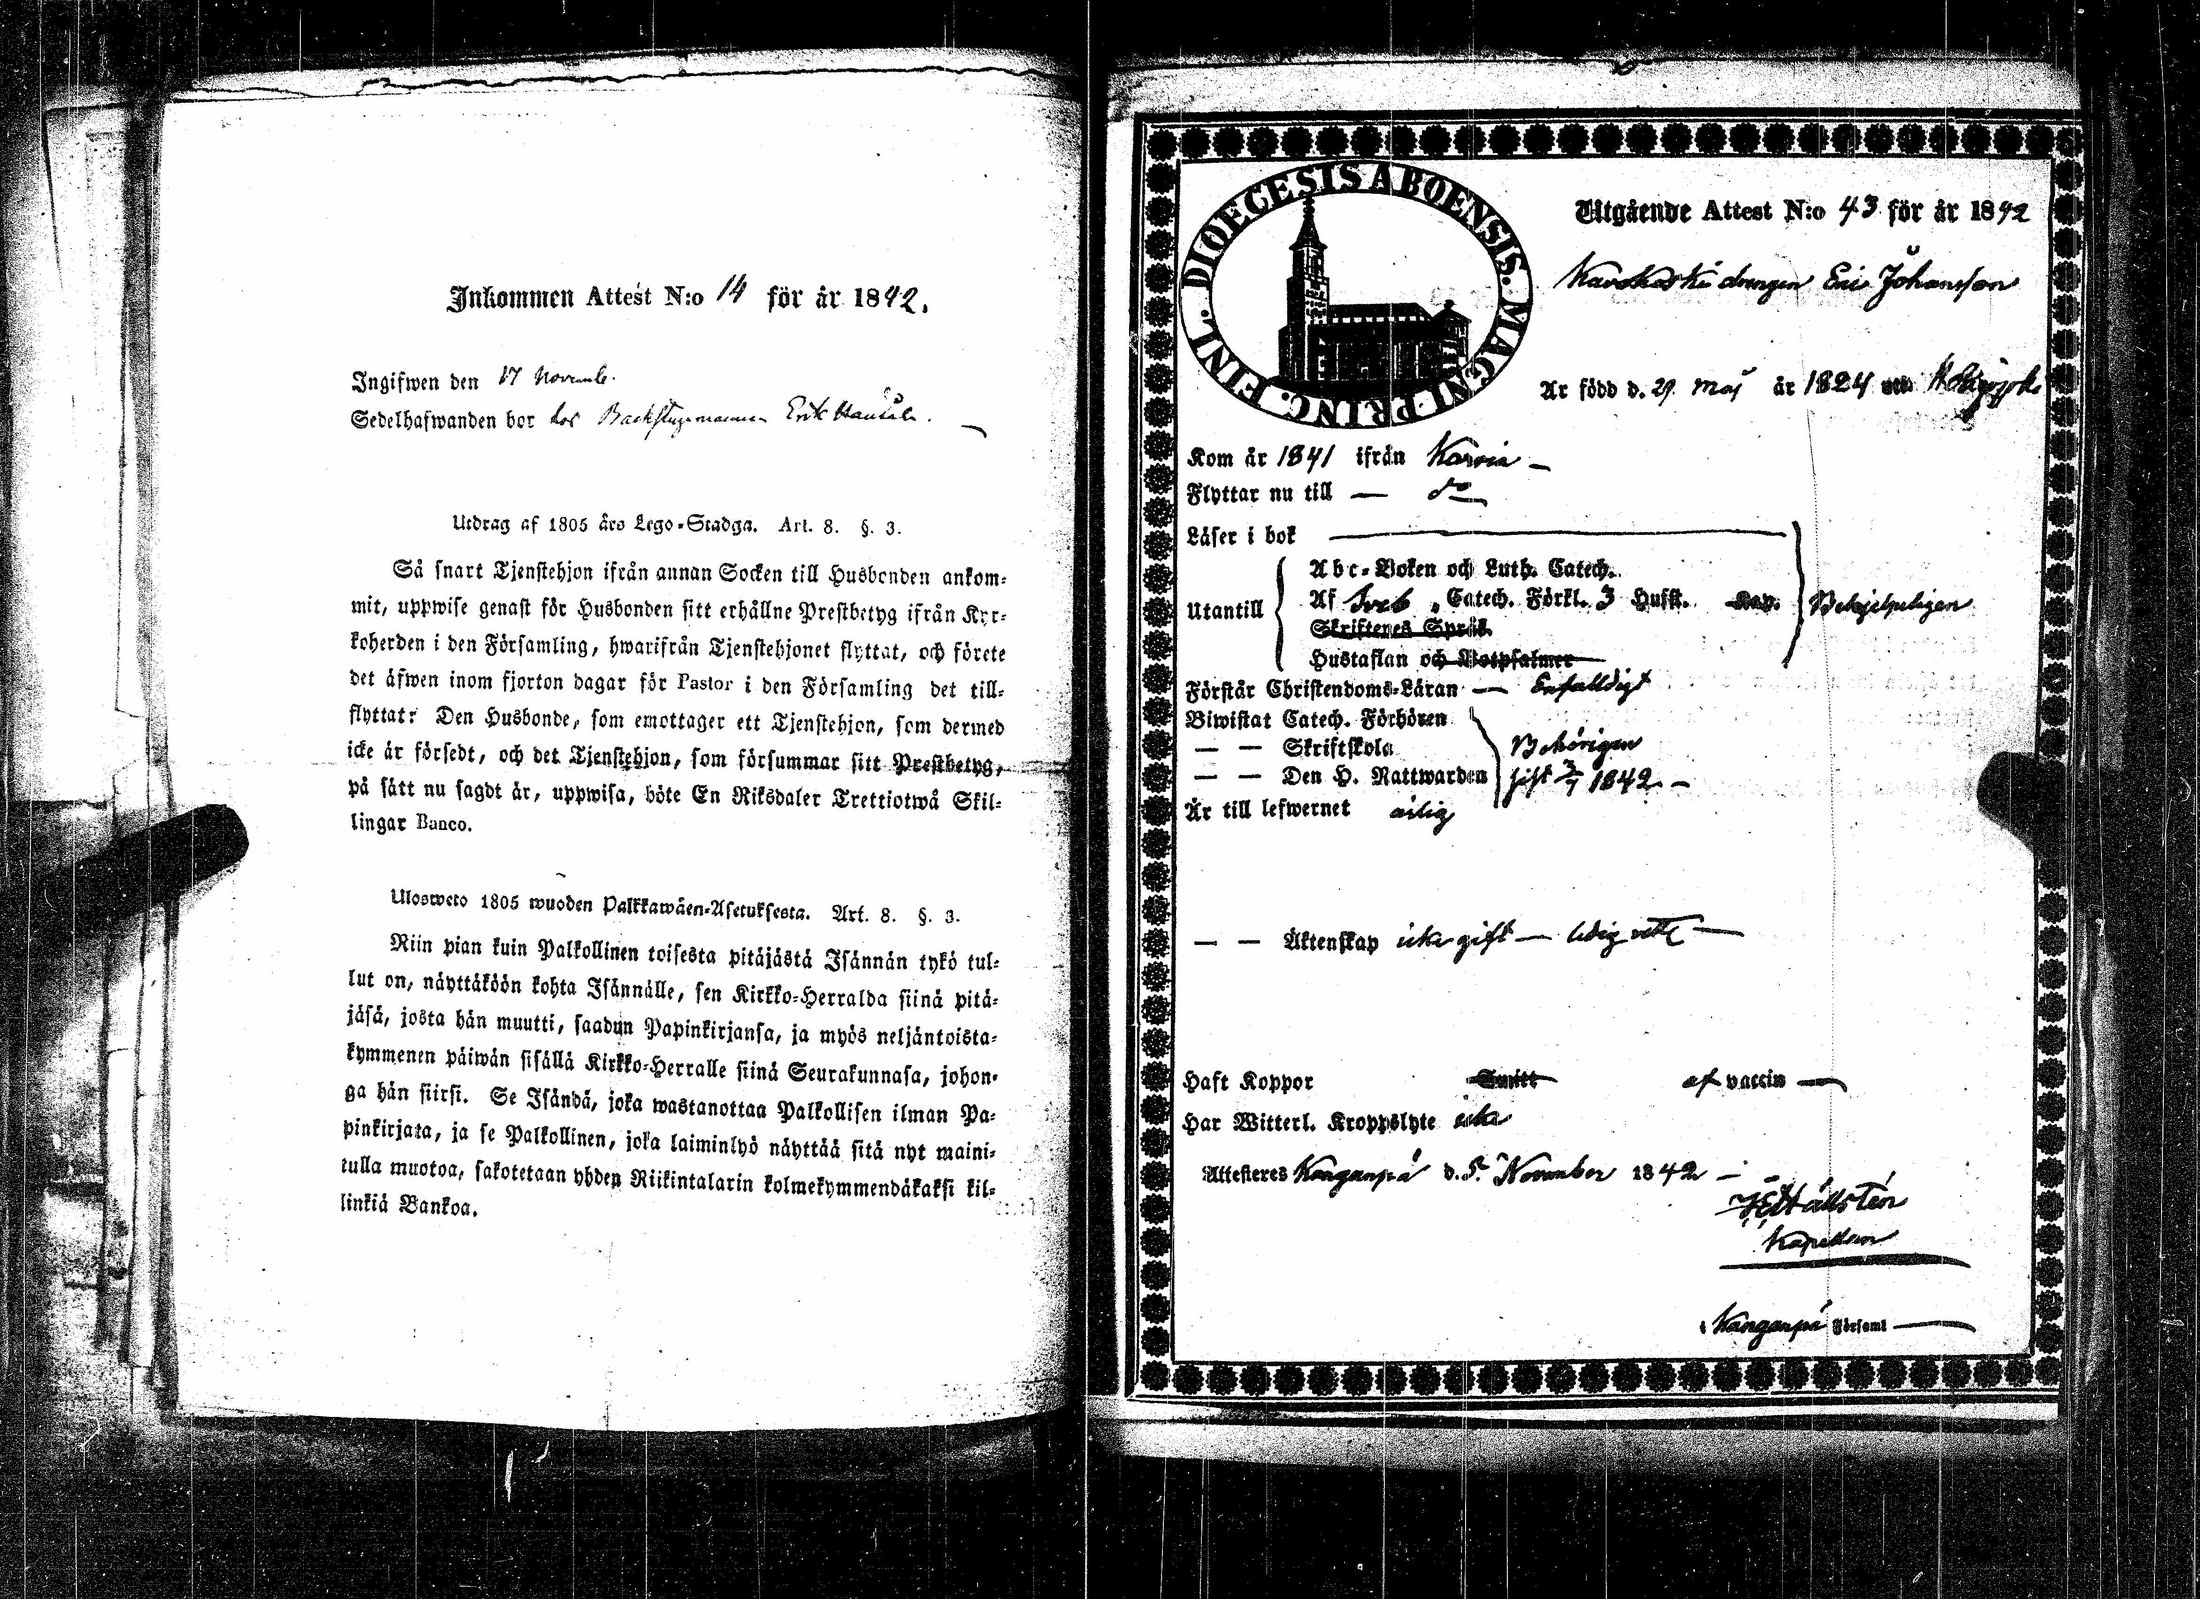 Inkommen Attest N:o 14 för år 1842.
Ingifwen den 17 Novemb.
Sedelhafwanden bor hos Backstugumannen Erik
Utdrag af 1805 års Lego-Stadga. Art. 8. §. 3.
Så snart Tjenstehjon ifrån annan Socken till Husbonden ankom-
mit, uppwise genast för Husbonden sitt erhållne Prestbetyg ifrån Kyr-
koherden i den Församling, hwarifrån Tjenstehjonet flyttat, och förete
det äfwen inom fjorton dagar för Pastor i den Församling det till-
flyttat: Den Husbonde, som emottager ett Tjenstehjon, som dermed
icke är försedt, och det Tjenstehjon, som försummar sitt Prestbetyg,
på sätt nu sagdt är, uppwisa, böte En Riksdaler Trettiotwå Skil-
lingar Banco.
Ulosweto 1805 wuoden Palkkawäen-Asetuksesta. Art. 8. §. 3.
Niin pian kuin Palkollinen toisesta pitäjästä Isännän tykö tul-
lut on, näyttäköön kohta Isännälle, sen Kirkko-Herralda siinä pitä-
jäsä, josta hän muutti, saadun Papinkirjansa, ja myös neljäntoista-
kymmenen päiwän sisällä Kirkko-Herralle siinä Seurakunnasa, johon-
ga hän siirsi. Se Isändä, joka wastanottaa Palkollisen ilman Pa-
pinkirjata, ja se Palkollinen, joka laiminlyö näyttää sitä nyt maini-
tulla muotoa, sakotetaan yhden Riikintalarin kolmekymmendäkaksi kil-
linkiä Bankoa.
DIOECESIS ABOENSIS. MAGNI PRINC. FINL.
Utgående Attest N:o 43 för år 1842
drengen Eric Johansson
Är född d. 29 Maj år 1824
Kom år 1841 ifrån Karvia
Flyttar nu till — do
Läser i bok
Utantill
Abc-Boken och Luth. Catech.
Af Sveb. Catech. Förkl. 3 Hufst. Kap. Behjelpeligen
Skriftenes Språk
Hustaflan och Botpsalmer
Förstår Christendoms-Läran — Enfalldigt
Biwistat Catech. Förhören
— — Skriftskola Behörigen
— — Den H. Nattwarden sist 3/7 1842
Är till lefwernet ärlig
— — Äktenskap icke gift — ledig
Haft Koppor Smitt af vaccin
Har Witterl. Kroppslyte icke
Attesteres Kanganpä d. 5 November 1842
Hällstén
Kapellan
i Kanganpä Församl